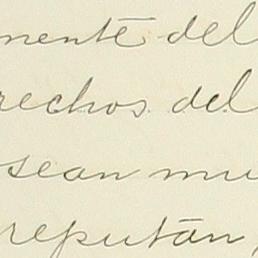 mente del
rechos del
sean mu
repután